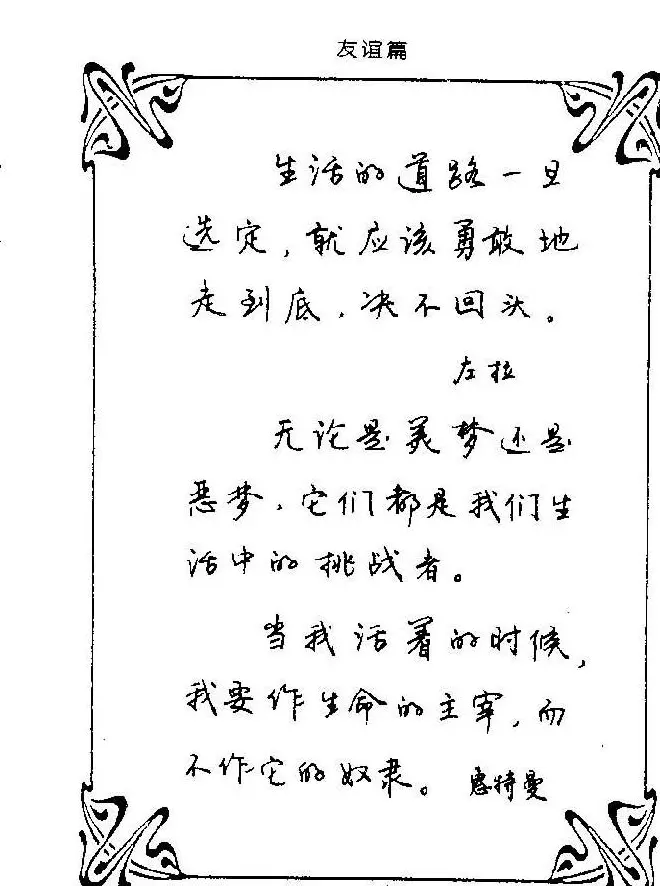 友谊篇
生活的道路一旦
选定，就应该勇敢地
走到底，决不回头。
左拉
无论是美梦还是
恶梦，它们都是我们生
活中的挑战者。
当我活着的时候，
我要作生命的主宰，而
不作它的奴隶。惠特曼